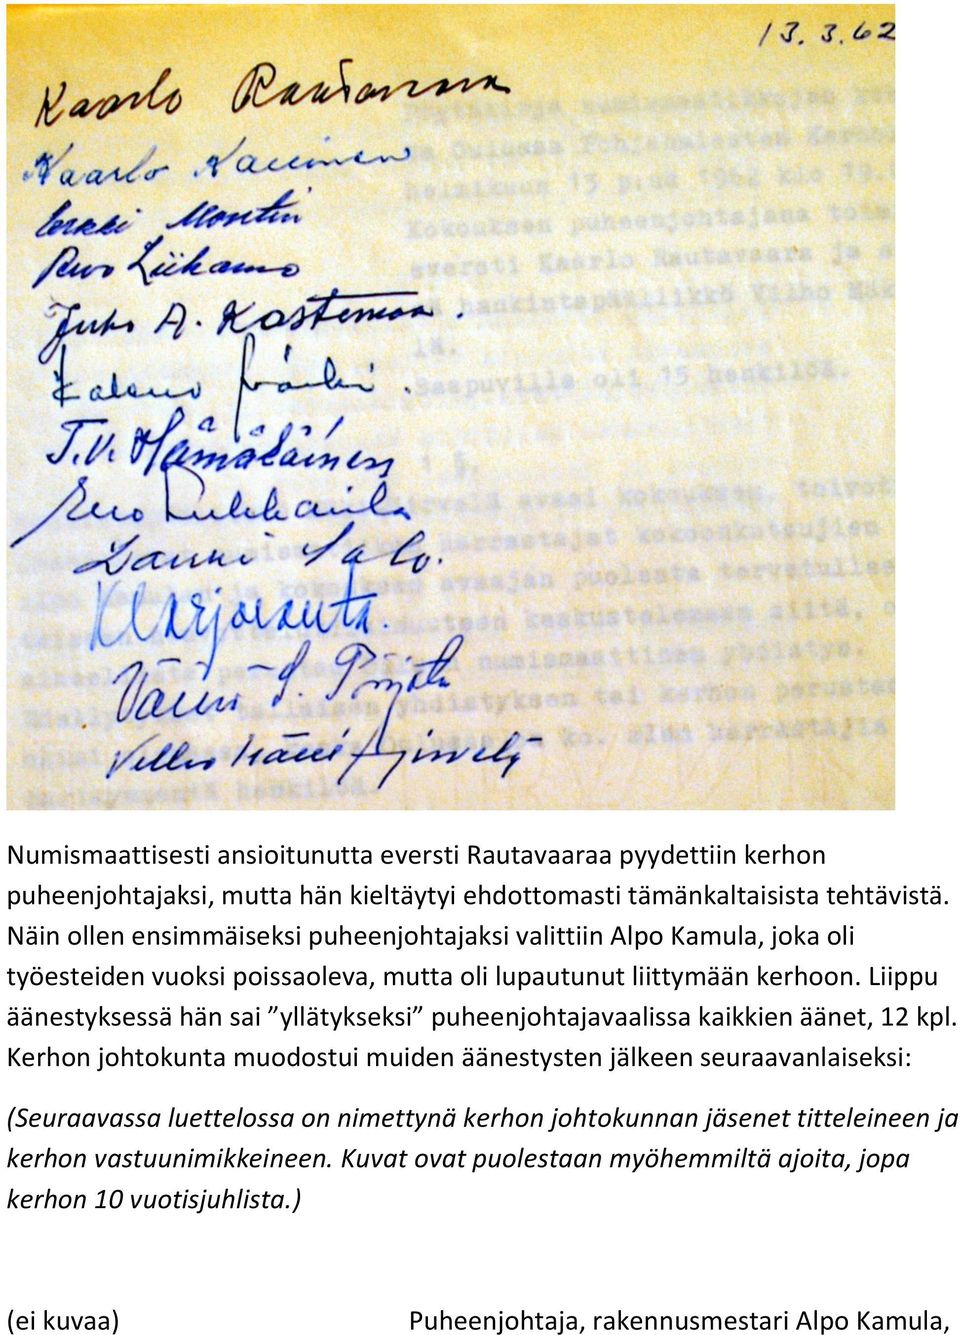 13.3.62
Kaarlo Rautavaara
Kaarlo
Erkki Montin
Liikamo
Juho A. Kastemaa.
Kalervo
T.V. Hämäläinen
Eero
Lauri Salo.
Väinö J.
Veikko
Pöytäkirja numismaatikkojen
Oulussa Pohjalaisten Kerhon
helmikuun 13 p:nä 1962 klo 19.
Kokouksen puheenjohtajana
eversti Kaarlo Rautavaara ja
hankintapäällikkö Vilho
Saapuvilla oli 15 henkilöä.
1 §.
avasi kokouksen,
harrastajat kokoonkutsujien
ja kokouksen avaajan puolesta
keskustelemaan siitä,
numismaattinen yhdistys.
tällaisen yhdistyksen tai kerhon
ko. alan harrastajia
henkilöä.
Numismaattisesti ansioitunutta eversti Rautavaaraa pyydettiin kerhon
puheenjohtajaksi, mutta hän kieltäytyi ehdottomasti tämänkaltaisista tehtävistä.
Näin ollen ensimmäiseksi puheenjohtajaksi valittiin Alpo Kamula, joka oli
työesteiden vuoksi poissaoleva, mutta oli lupautunut liittymään kerhoon. Liippu
äänestyksessä hän sai ”yllätykseksi” puheenjohtajavaalissa kaikkien äänet, 12 kpl.
Kerhon johtokunta muodostui muiden äänestysten jälkeen seuraavanlaiseksi:
(Seuraavassa luettelossa on nimettynä kerhon johtokunnan jäsenet titteleineen ja
kerhon vastuunimikkeineen. Kuvat ovat puolestaan myöhemmiltä ajoita, jopa
kerhon 10 vuotisjuhlista.)
(ei kuvaa) Puheenjohtaja, rakennusmestari Alpo Kamula,